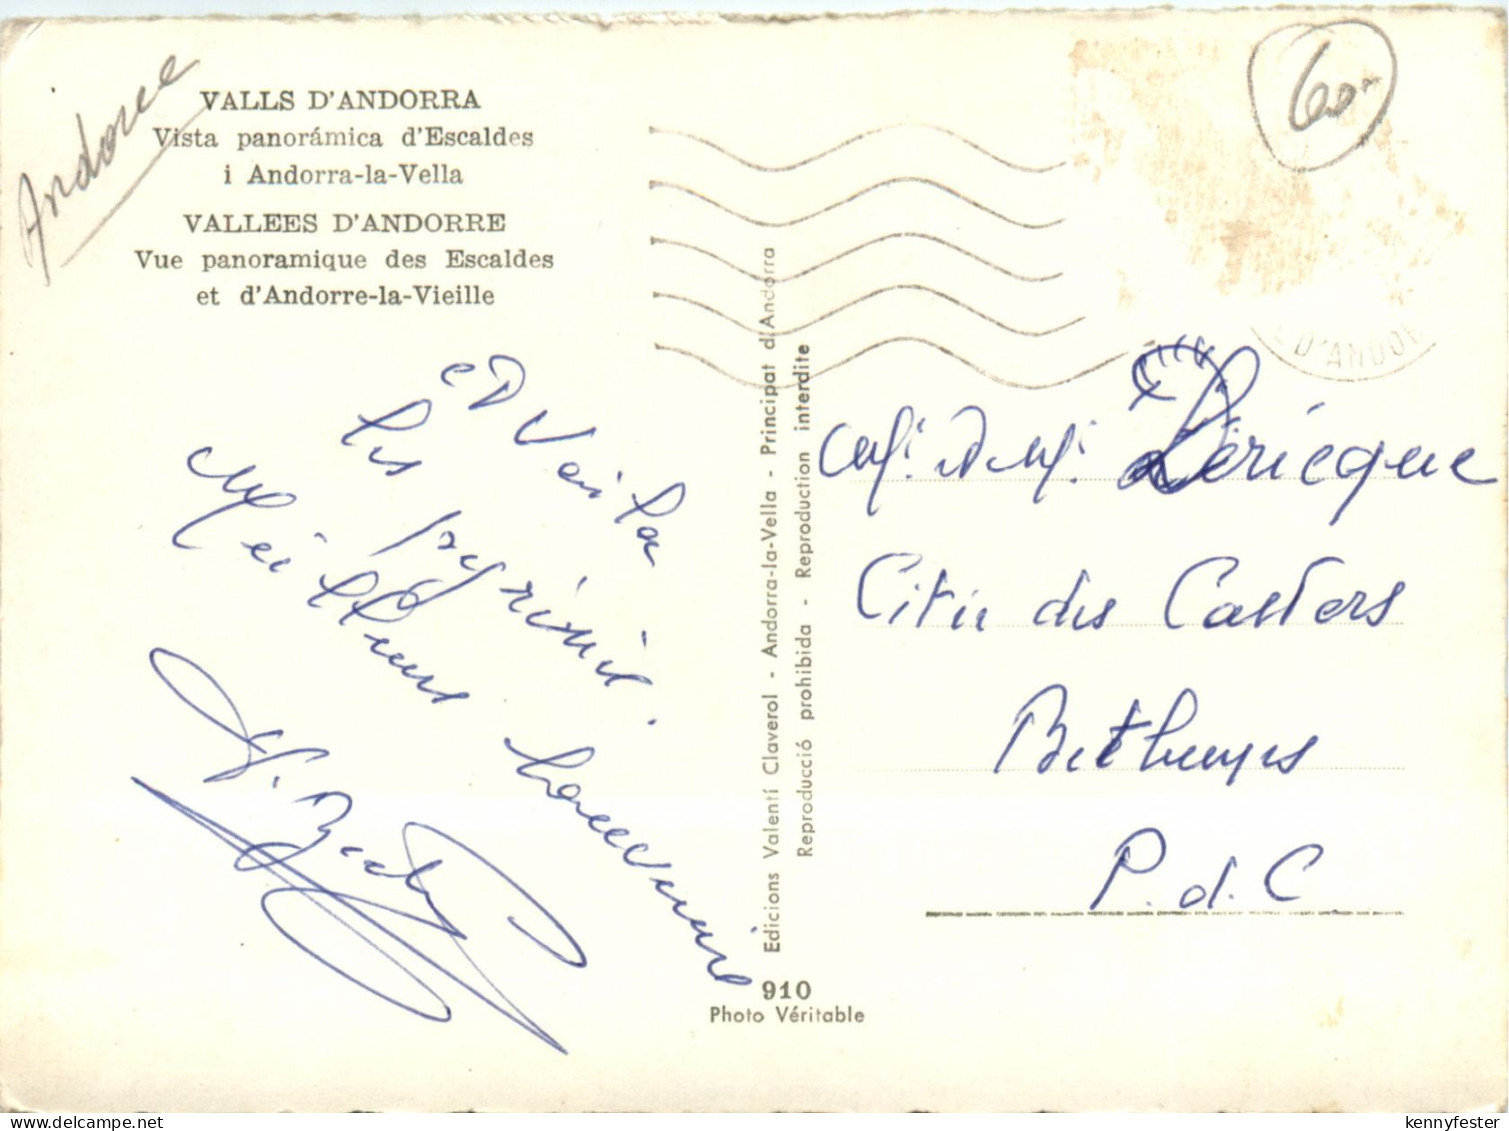 Andorre
VALLS D'ANDORRA
Vista panorámica d'Escaldes
i Andorra-la-Vella
VALLEES D'ANDORRE
Vue panoramique des Escaldes
et d'Andorre-la-Vieille
60
E D'ANDOR
et Voila
les pyrénnés.
Meilleurs souvenirs
Edicions Valentí Claverol - Andorra-la-Vella - Principat d'Andorra
Reproducció prohibida - Reproduction interdite
910
Photo Véritable
Dericque
Citée des Castors
Bethunes
P.d.C
kennyfester